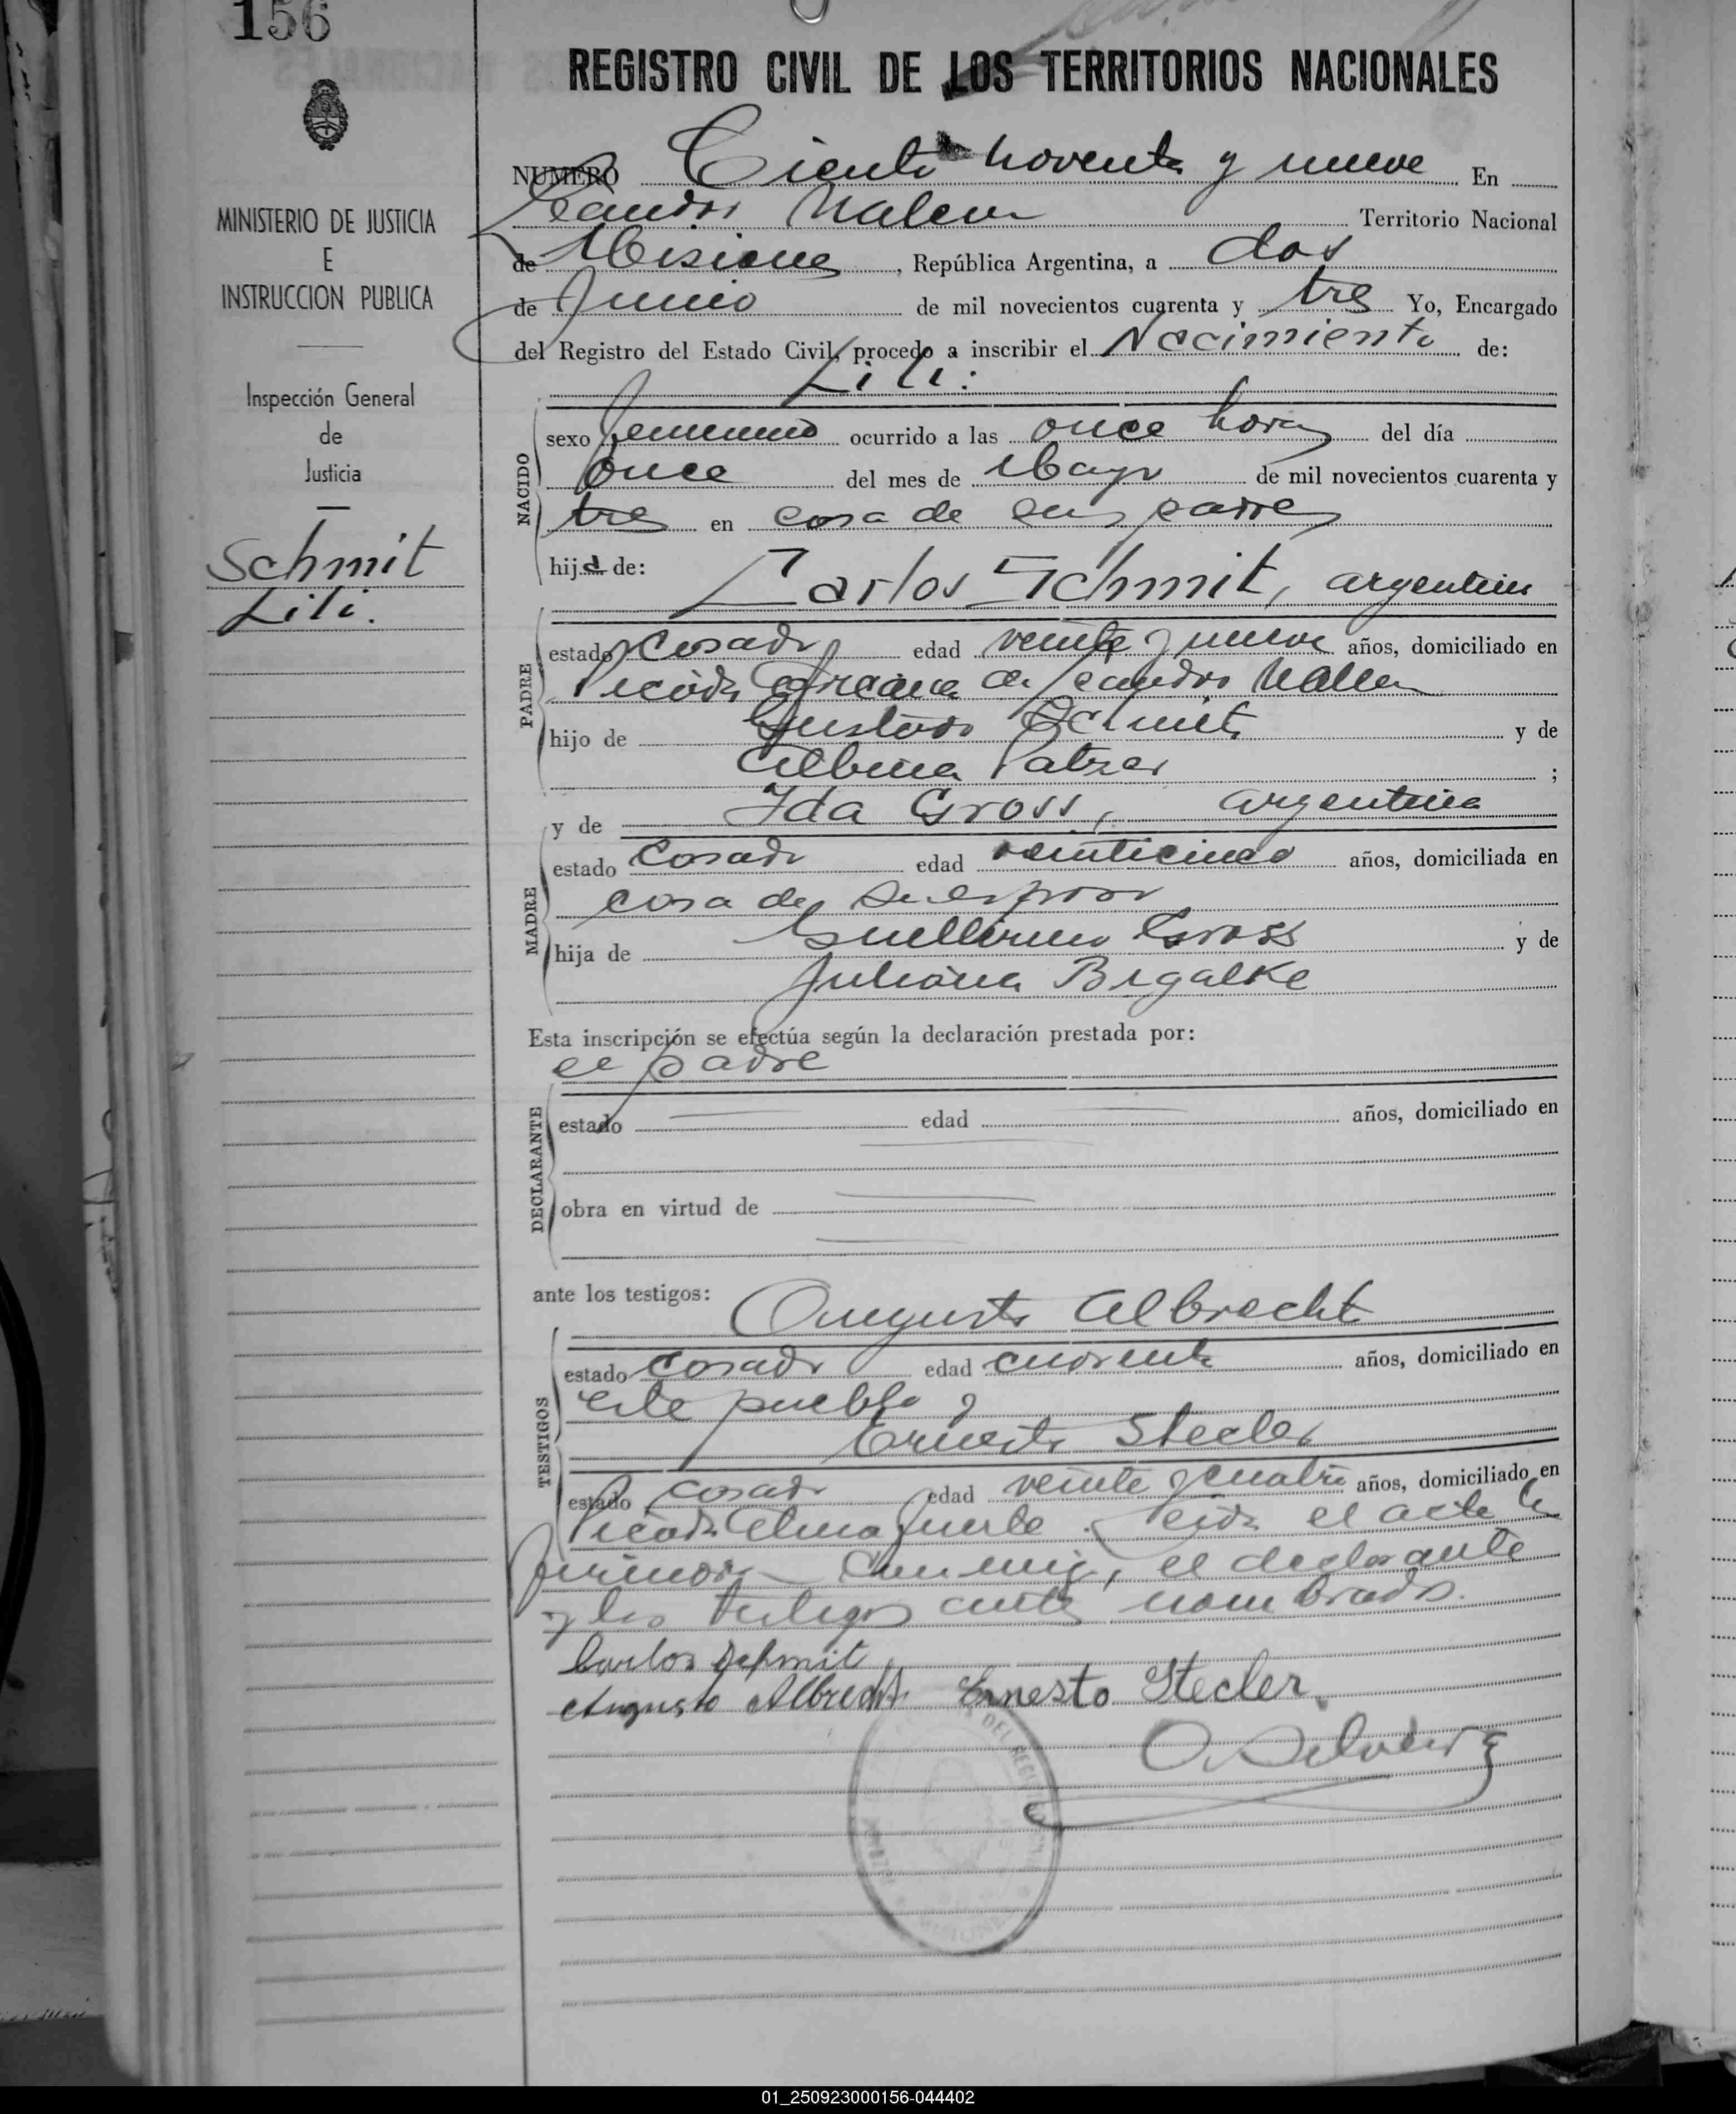 156
REGISTRO CIVIL DE LOS TERRITORIOS NACIONALES
MINISTERIO DE JUSTICIA
E
INSTRUCCION PUBLICA
Inspección General
de
Justicia
Schmit
Lili.
NUMERO Ciento noventa y nueve En
Leandro N Alem Territorio Nacional
de Misiones, República Argentina, a dos
de Junio de mil novecientos cuarenta y tres Yo, Encargado
del Registro del Estado Civil, procedo a inscribir el Nacimiento de:
Lili:
NACIDO
sexo femenino ocurrido a las once horas del día
once del mes de Mayo de mil novecientos cuarenta y
tres en casa de sus padres
hija de: Carlos Schmit, argentino
PADRE
estado casado edad veinte y nueve años, domiciliado en
Picada de Leandro N Alem
hijo de Gustavo Schmit y de
Albina Patzer ;
MADRE
y de Ida Gross, argentina
estado casada edad veinticinco años, domiciliada en
casa de su esposo
hija de Guillermo Gross y de
Juliana Bigalke
Esta inscripción se efectúa según la declaración prestada por:
el padre
DECLARANTE
estado edad años, domiciliado en
obra en virtud de
ante los testigos: Augusto Albrecht
TESTIGOS
estado casado edad cuarenta años, domiciliado en
este pueblo y
Ernesto Stecler
estado casado edad veinte y cuatro años, domiciliado en
Picada Almafuerte. Leida el acta la
firmaron conmigo, el declarante
y los testigos antes nombrados.
Carlos Schmit
Augusto Albrecht Ernesto Stecler.
01_250923000156-044402